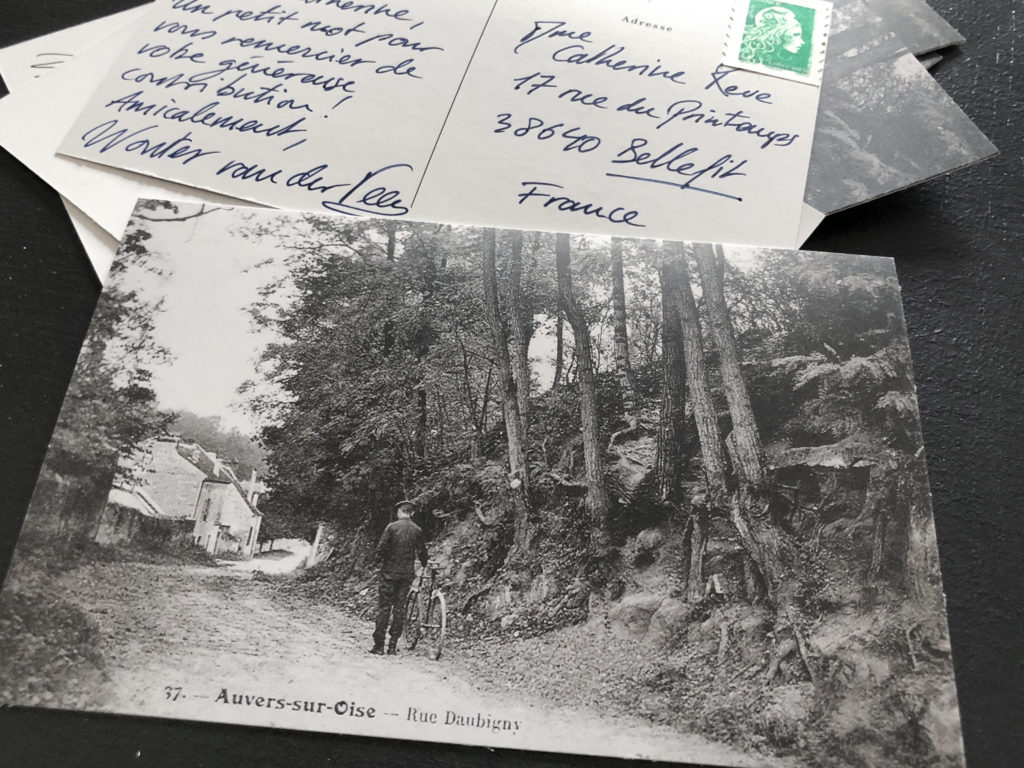 Un petit mot pour
vous remercier de
votre généreuse
contribution !
Amicalement,
Wouter van der Veen
Adresse
Mme
Catherine Reve
17 rue du Printemps
38640 Bellefit
France
37. — Auvers-sur-Oise — Rue Daubigny